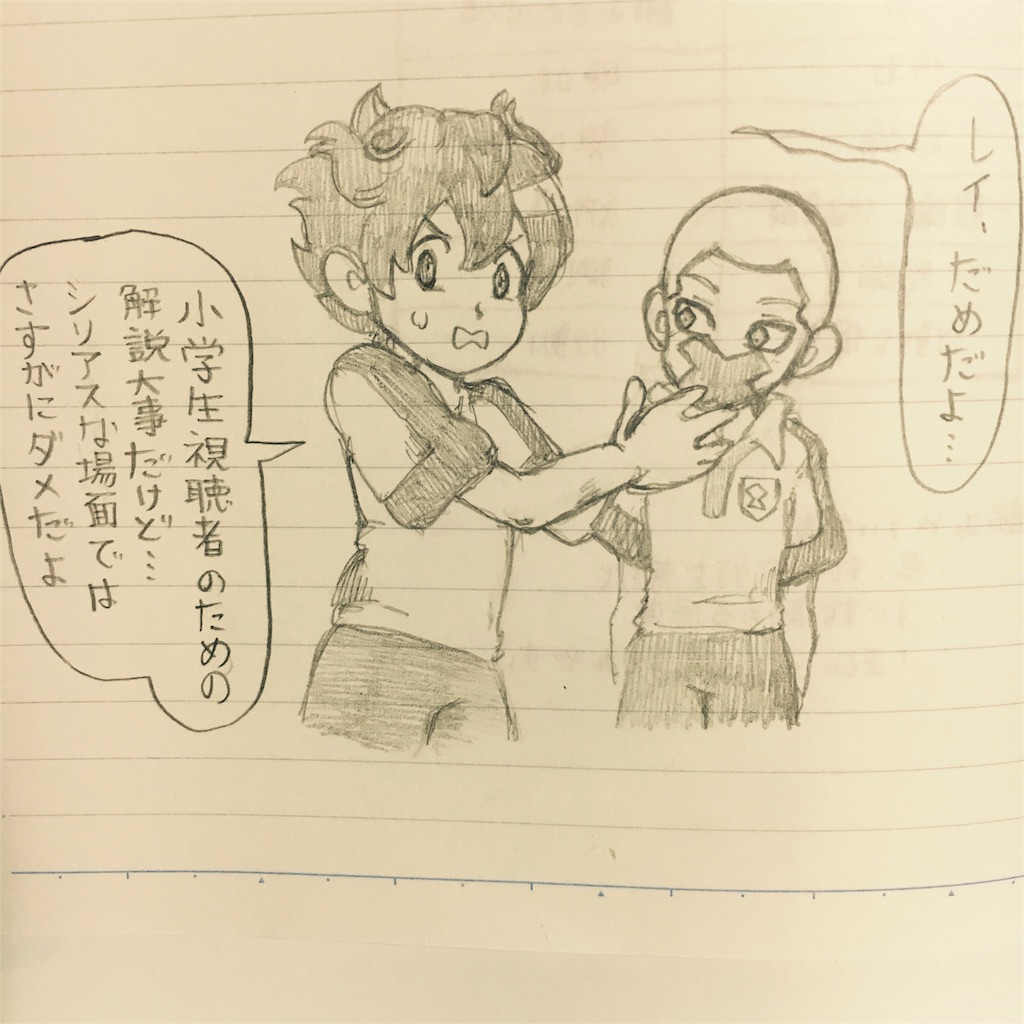 レイ、だめだよ…
小学生視聴者のための
解説大事だけど…
シリアスな場面では
さすがにダメだよ